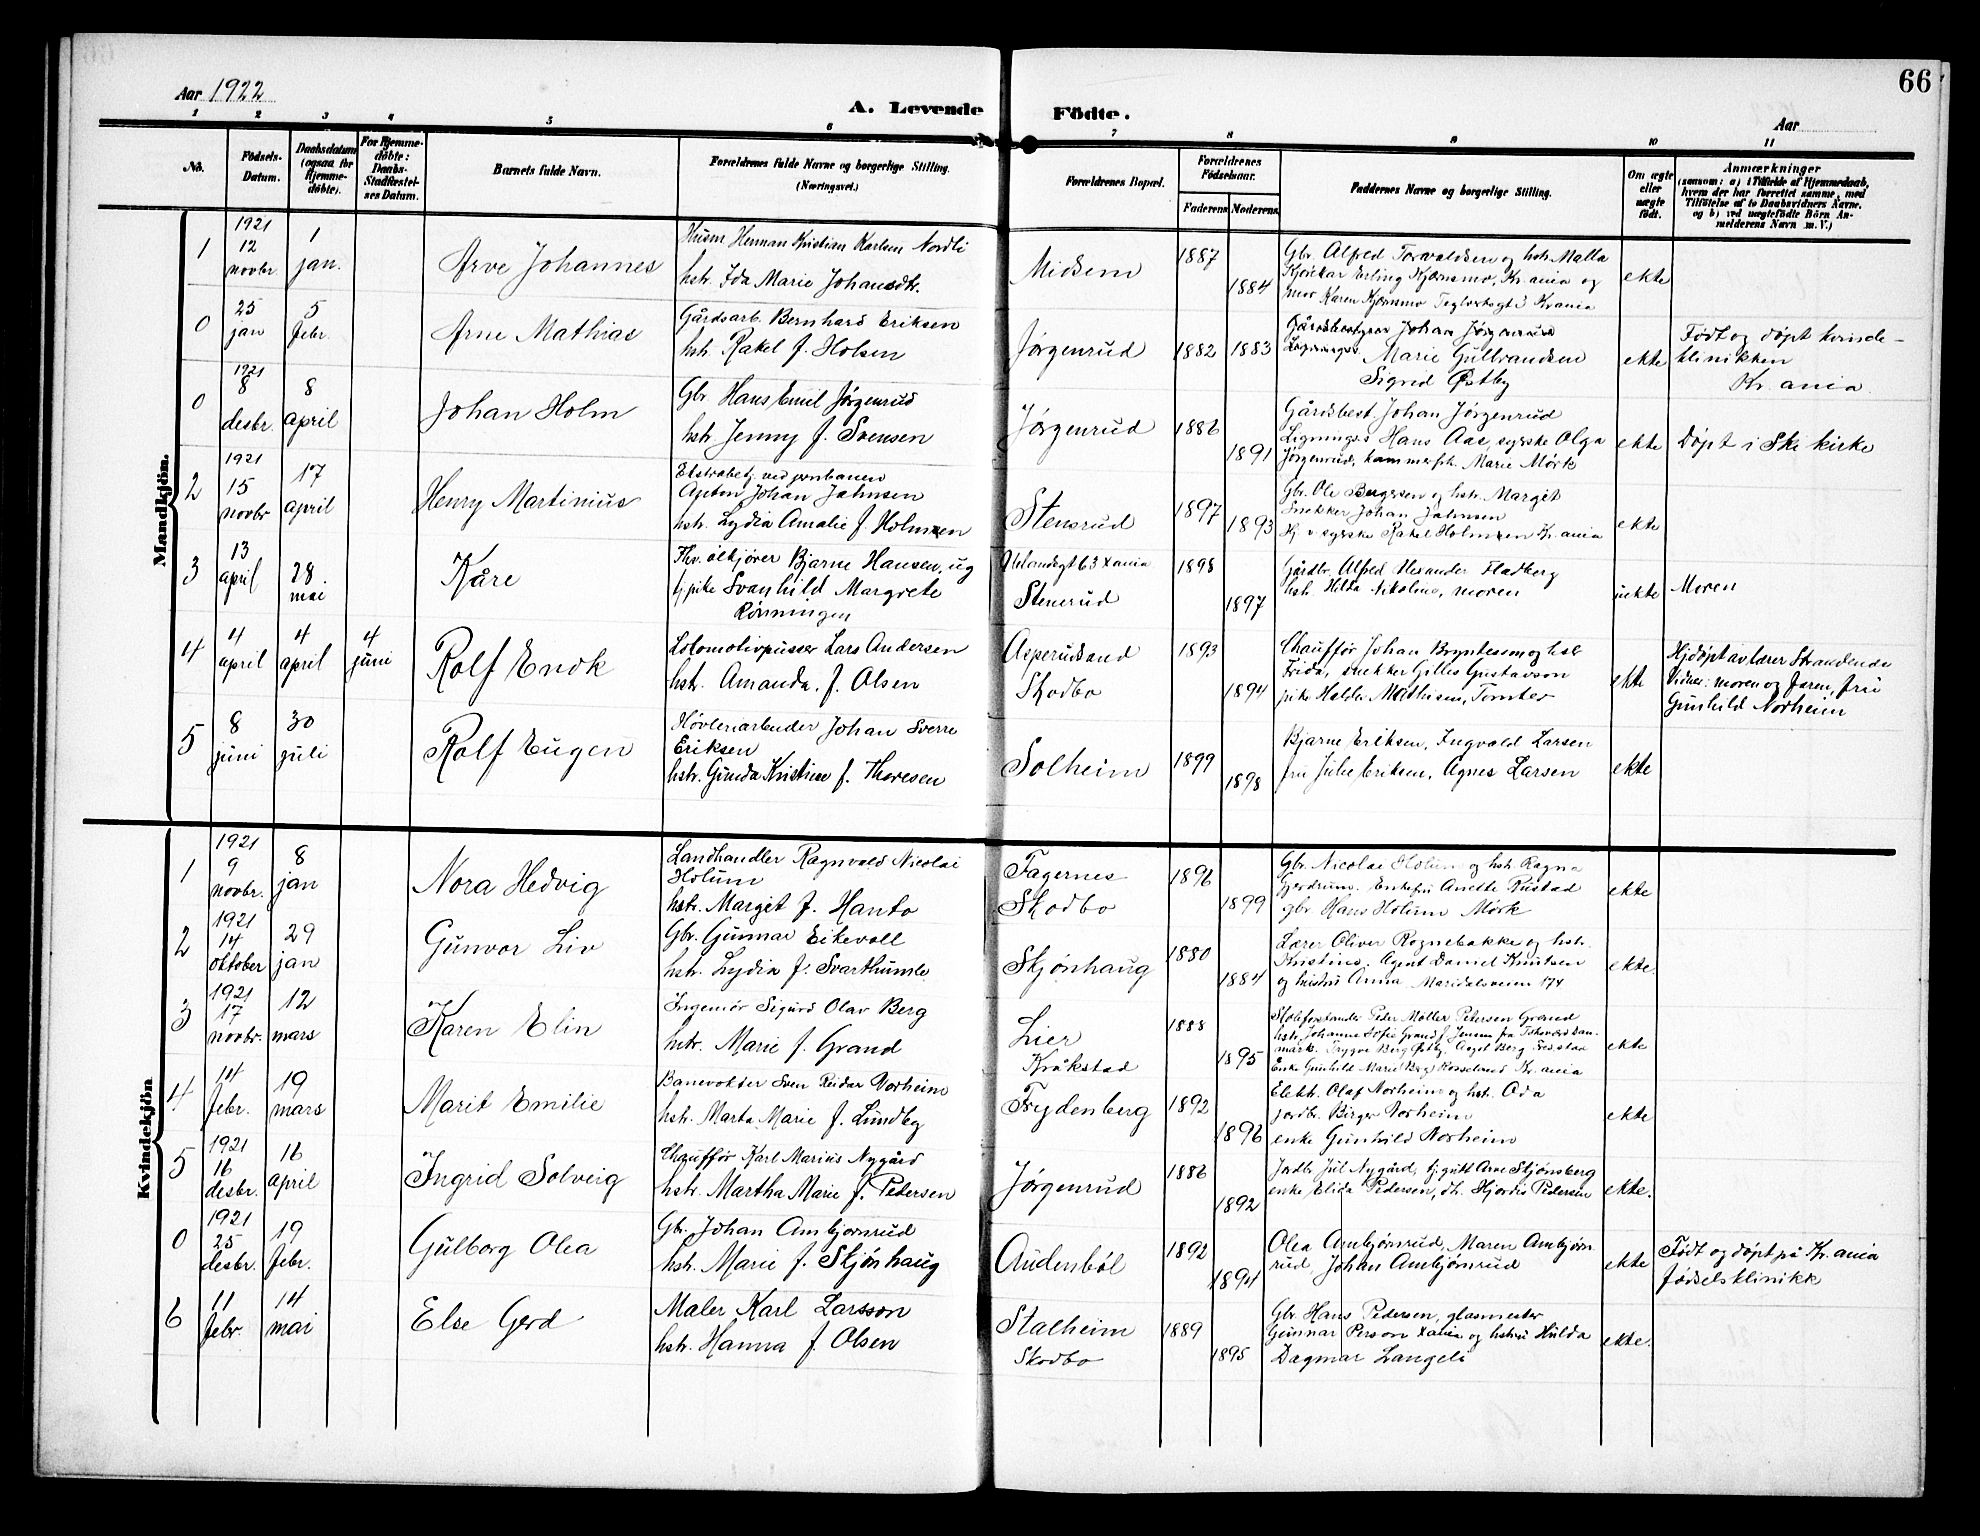 66
Aar 1922
A. Levende Födte.
Aar
1 2 3 4 5 6 7 8 9 10 11
No.
Födsels-
Datum.
Daabsdatum
(ogsaa for
Hjemme-
döbte).
For Hjemme-
döbte:
Daabs-
Stadfæstel-
ses Datum.
Barnets fulde Navn.
Forældrenes fulde Navne og borgerlige Stilling.
(Næringsvei.)
Forældrenes Bopæl.
Forældrenes
Födselsaar.
Faderens Moderens
Faddernes Navne og borgerlige Stilling.
Om ægte
eller
uægte
födt.
Anmærkninger
(saasom: a) i Tilfælde af Hjemmedaab,
hvem der har forrettet samme, med
Tilföielse af to Daabsvidners Navne,
og b) ved uægtefödte Börn An-
melderens Navn m. V.)
Mandkjön.
1
1921
12
novbr.
1
jan.
Arve Johannes
Husm Herman Kristian Karlsen Nordli
hstr. Ida Marie Johansdtr.
Midsem
1887
1884
Gbr. Alfred Torvaldsen og hstr. Malla
Erling Kjærnsmo, Kr.ania og
Karen Kjærnsmo Kr.ania
ekte
0
25
jan
5
febr.
Arne Mathias
Gårdsarb. Bernhard Eriksen
hstr. Rakel f. Holsen
Jørgenrud
1882
1883
Johan Jørgenrud
Marie Gulbrandsen
Sigrid Østby
ekte
Født og døpt kvinde-
klinikken
Kr.ania
0
1921
8
desbr.
8
april
Johan Holm
Gbr Hans Emil Jørgenrud
hstr. Jenny f. Svensen
Jørgenrud
1886
1891
Gårdsbest. Johan Jørgenrud
Lignings.s Hans Aas, syerske Olga
Jørgenrud, Marie Mörk
ekte
Døpt i Ski kirke
2
1921
15
novbr
17
april
Henry Martinius
Ekstrabetj. ved jernbanen
Anton Johan Jahnsen
hstr. Lydia Amalie f. Holmsen
Stensrud
1897
1893
Gbr. Ole Bergersen og hstr. Margit
Snekker Johan Jahnsen
syerske Rakel Holmsen Kr.ania
ekte
3
13
april
28.
mai
Kåre
Thv. ølkjører Bjarne Hansen, ug
tj.pike Svanhild Margrete
Rönningen
63 Xania
Stensrud
1898
1897
Gårdbr. Alfred Alexander Fladberg
hstr. Hilda Nikoline, moren
uekte
Moren
4
4
april
4
april
4
juni
Rolf
Lokomotivpusser Lars Andersen
hstr. Amanda. f. Olsen
Asperudsand
Skodbo
1893
1894
Chauffør Johan Bryntesson og hstr
Frida, snekker Gilles Gustavson
pike Halda Mathisen, Tomter
ekte
Hjdøpt av lærer Strandende
Vidner: moren og faren, fru
Gunhild Norheim
5
8
juni
30
juli
Rolf Eugen
Høvleriarbeider Johan Sverre
Eriksen
hstr. Gunda Kristine f. Thoresen
Solheim
1899
1898
Bjarne Eriksen, Ingvald Larsen
fru Julie Eriksen, Agnes Larsen
ekte
Kvindekjön
1
1921
9
novbr.
8
jan
Nora Hedvig
Landhandler Ragnvald Nicolai
Holum
hstr. Margit f. Hanto
Fagernes
Skodbo
1896
1899
Gbr. Nicolai Holum og hstr. Ragna
Gjerdrum. Enkefru Anette Rustad
gbr. Hans Holum Mörk
ekte
2
1921
14
oktober
29
jan
Gunvor Liv
Gbr. Gunnar Eikevoll
hstr. Lydia f. Svarthumle
Skjønhaug
1880
1884
Lærer Oliver Rognebakke og hstr.
Kristine. Agent Daniel Knutsen
og hustru Anna Maridalsveien 174
ekte.
3
1921
17
novbr.
12
mars
Karen Elin
Ingeniør Sigurd Olav Berg
hstr. Marie f. Grand
Lier
Kråkstad
1888
1895
Skoleforstander Peder Møller Petersen Grand
hstr. Johanne Sofie Grand f. Jensen fra Dan-
mark. Trygve Berg Østby. Aagot Berg
Enke Gunhild Marie Berg Rosselund Kr.ania
ekte
4
14
febr.
19
mars
Marit Emilie
Banevokter Sven Reidar Norheim
hstr. Marta Marie f. Lundby
Frydenberg
1892
1896
Elektr. Olaf Norheim og hstr. Oda
jordbr. Birger Norheim
enke Gunhild Norheim
ekte
5
1921
16
desbr.
16
april
Ingrid Solveig
Chauffør Karl Marius Nygård
hstr. Martha Marie f. Petersen
Jørgenrud
1886
1892
Jordbr Jul Nygård, tj.gutt Arne Stjönsberg
enke Elida Pedersen, dtr. Hjördis Pedersen
ekte.
0
1921
25
desbr.
19
febr.
Gulborg Olea
Gbr. Johan Ambjørnrud
hstr. Marie f. Skjönhaug
Audenbøl
1892
1894
Olea Ambjörnrud, Maren Ambjörn
rud, Johan Ambjörnrud
ekte
Født og døpt på Kr.ania
fødselsklinikk
6
11
febr.
14
mai
Else Gerd
Maler Karl Larsson
hstr. Hanna f. Olsen
Stalheim
Skodbo
1889
1895
Gbr. Hans Pedersen, glasmester
Gunnar Person Xania og hstru Hulda
Dagmar Langeli
ekte.